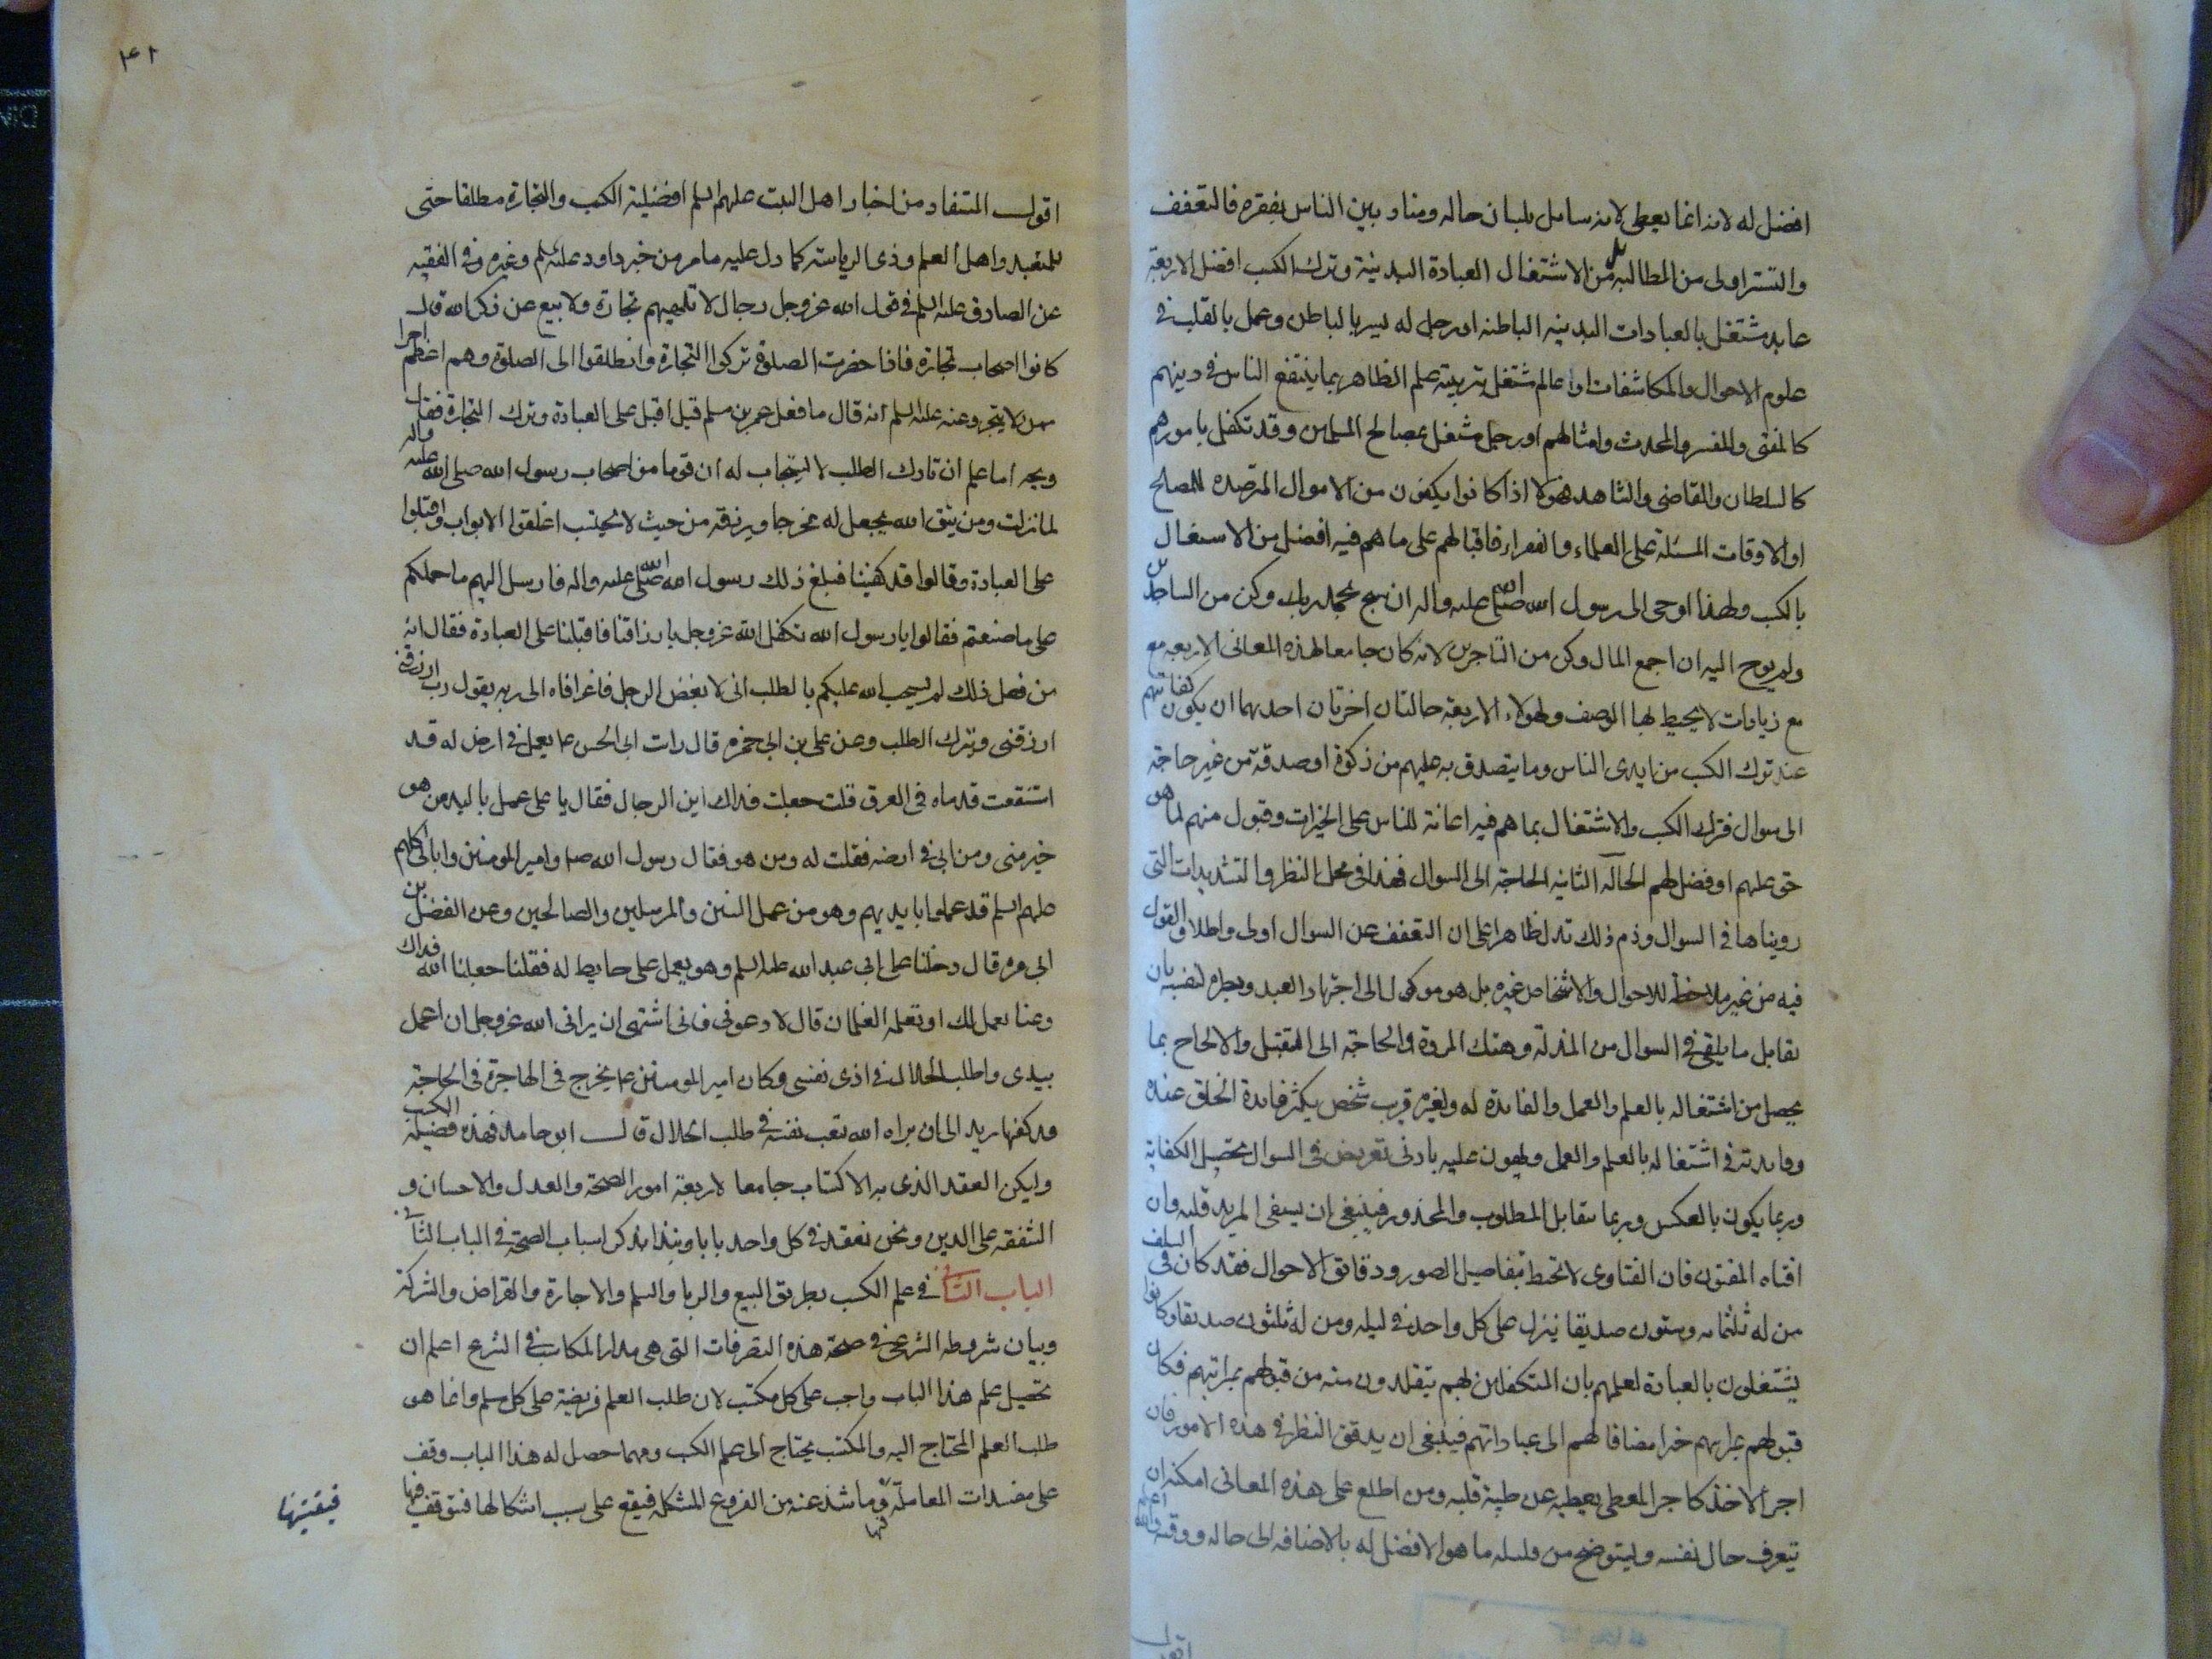 افضل له لانه انما يعطى لانه سايل بلسان حاله ومناد بين الناس بفقره فالتعفف
والتستر اولى من المطالبه بل من الاشتغال العبادة البدنية وترك الكسب افضل لاربعة
عابد مشتغل بالعبادات البدينه الباطنه او رجل له سير بالباطن وعمل بالقلب فى
علوم الاحوال والمكاشفات او عالم مشتغل بتربية علم الظاهر بما ينتفع الناس فى دينهم
كالمفتى والمفسر والمحدث وامثالهم او رجل مشتغل بمصالح المسلمين وقد تكفل بامورهم
كالسلطان والقاضى والشاهد فهولا اذا كانوا يكفون من الاموال المرصده للمصالح
او الاوقات المسبلة على العلماء والفقراء فاقبالهم على ما هم فيه افضل من الاشتغال
بالكسب ولهذا اوحى الى رسول الله صلى الله عليه واله ان سبح بحمد ربك وكن من الساجدين
ولم يوح اليه ان اجمع المال وكن من التاجرين لانه كان جامعا لهذه المعانى الاربعه مع
مع زيادات لا يحيط بها الوصف ولهولاء الاربعة حالتان اخرتان احدهما ان يكون كفايتهم
عند ترك الكسب من ايدى الناس وما يتصدق به عليهم من زكوة او صدقة من غير حاجة
الى سوال فترك الكسب والاشتغال بما هم فيه اعانة للناس على الخيرات وقبول منهم لما هو
حق عليهم او فضل لهم الحالة الثانيه الحاجة الى السوال فهذا فى محل النظر والتشديدات التى
رويناها فى السوال وذم ذلك تدل ظاهرا على ان التعفف عن السوال اولى واطلاق القول
فيه من غير ملاحظه للاحوال والاشخاص عسير بل هو موكول الى اجتهاد العبد ونظره لنفسه بان
يقابل ما يلقى فى السوال من المذلة وهتك المروة والحاجة الى التثقيل والالحاح بما
يحصل من اشتغاله بالعلم والعمل والفائدة له ولغيره فرب شخص يكثر فايدة الخلق عنده
وفايدته فى اشتغاله بالعلم والعمل ويهون عليه بادنى تعريض فى السوال تحصيل الكفاية
وربما يكون بالعكس وربما يتقابل المطلوب والمحذور فينبغى ان يستفتى المريد قلبه وان
افتاه المفتون فان الفتاوى لا تحيط بتفاصيل الصور ودقايق الاحوال فقد كان فى السلف
من له ثلثمائه وستون صديقا ينزل على كل واحد فى ليله ومن له ثلثون صديقا وكانوا
يشتغلون بالعبادة لعلمهم بان المتكفلين لهم يتقلدون منه من قبولهم بمراتبهم فكان
قبولهم بمراتبهم خيرا مضافا لهم الى عباداتهم فينبغى ان يدقق النظر فى هذه الامور فان
اجر الاخذ كاجر المعطى يعطيه عن طيبة قلبه ومن اطلع على هذه المعانى امكنه ان
يتعرف حال نفسه وليتوضح من قلبه ما هو الافضل له بالاضافه الى حاله ووقته والله اعلم
اقول
٤١
اقول المستفاد من اخبار اهل البيت عليهم السلم افضلية الكسب والتجارة مطلقا حتى
للمتعبد واهل العلم وذى الرياسة كما دل عليه ما مر من خبر داود عليه السلم وغيره وفى الفقيه
عن الصادق عليه السلم فى قول الله عز وجل رجال لا تلهيهم تجارة ولا بيع عن ذكر الله قال
كانوا اصحاب تجارة فاذا حضرت الصلوة تركوا التجارة وانطلقوا الى الصلوة وهم اعظم اجرا
ممن لا يتجر وعنه عليه السلم انه قال ما فعل عمر بن مسلم قيل اقبل على العبادة وترك التجارة فقال
ويحه اما علم ان تارك الطلب لا يستجاب له ان قوما من اصحاب رسول الله صلى الله عليه واله
لما نزلت ومن يتق الله يجعل له مخرجا ويرزقه من حيث لا يحتسب اغلقوا الابواب واقبلوا
على العبادة وقالوا قد كفينا فبلغ ذلك رسول الله صلى الله عليه واله فارسل اليهم ما حملكم
على ما صنعتم فقالوا يا رسول الله تكفل الله عز وجل بارزاقنا فاقبلنا على العبادة فقال انه
من فعل ذلك لم يستجب الله عليكم بالطلب انى لا بغض الرجل فاغرا فاه الى ربه يقول رب ارزقنى
ارزقنى ويترك الطلب وعن على بن ابى حمزه قال رات ابى الحسن ع يعمل فى ارض له قد
استنقعت قدماه فى العرق قلت جعلت فداك اين الرجال فقال يا على عمل باليد من هو
خير منى ومن ابى فى ارضه فقلت له ومن هو فقال رسول الله ص وامير المومنين وابائى كلهم
عليهم السلم قد عملوا بايديهم وهو من عمل النبيين والمرسلين والصالحين وعن الفضل بن
ابى مره قال دخلنا على ابى عبد الله عليه السلم وهو يعمل على حايط له فقلنا جعلنا الله فداك
دعنا نعمل لك او تعمله الغلمان قال لا دعونى فانى اشتهى ان يرانى الله عز وجل ان اعمل
بيدى واطلب الحلال فى اذى نفسى وكان امير المومنين ع يخرج فى الهاجرة فى الحاجة
قد كفيها يريد الى ان يراه الله يتعب نفسه فى طلب الحلال قال ابو حامد فهذه فضيلة الكسب
وليكن العقد الذى به الاكتساب جامعا لاربعة امور الصحة والعدل والاحسان و
الشفقه على الدين ونحن نعقد فى كل واحد بابا ونبتدا بذكر اسباب الصحة فى الباب الثانى
الباب الثانى فى علم الكسب بطريق البيع والربا والسلم والاجارة والقراض والشركة
وبيان شروطه الشرعى فى صحة هذه التصرفات التى هى مدار المكاسب فى الشرع اعلم ان
تحصيل علم هذا الباب واجب على كل مكتسب لان طلب العلم فريضة على كل مسلم وانما هو
طلب العلم المحتاج اليه والمكتسب يحتاج الى علم الكسب ومهما حصل له هذا الباب وقف
على مفسدات المعاملة فيتقيها وما شذ عنه من الفروع المشكله فيقع على سبب اشكالها فيتوقف فيها
فيتقيها